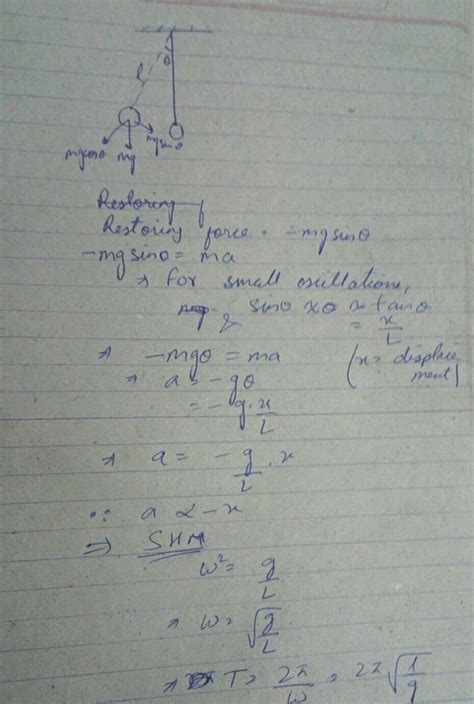 θ
l
mgcosθ mg mgsinθ
Restoring f
Restoring force = -mgsinθ
-mgsinθ = ma
⇒ for small oscillations,
sinθ ≈ θ ≈ tanθ
= x/L
⇒ -mgθ = ma (x = displace
ment)
⇒ a = -gθ
= -g·x/L
⇒ a = -g/L · x
∴ a α -x
⇒ SHM
ω² = g/L
⇒ ω = √g/L
⇒ T = 2π/ω = 2π√l/g